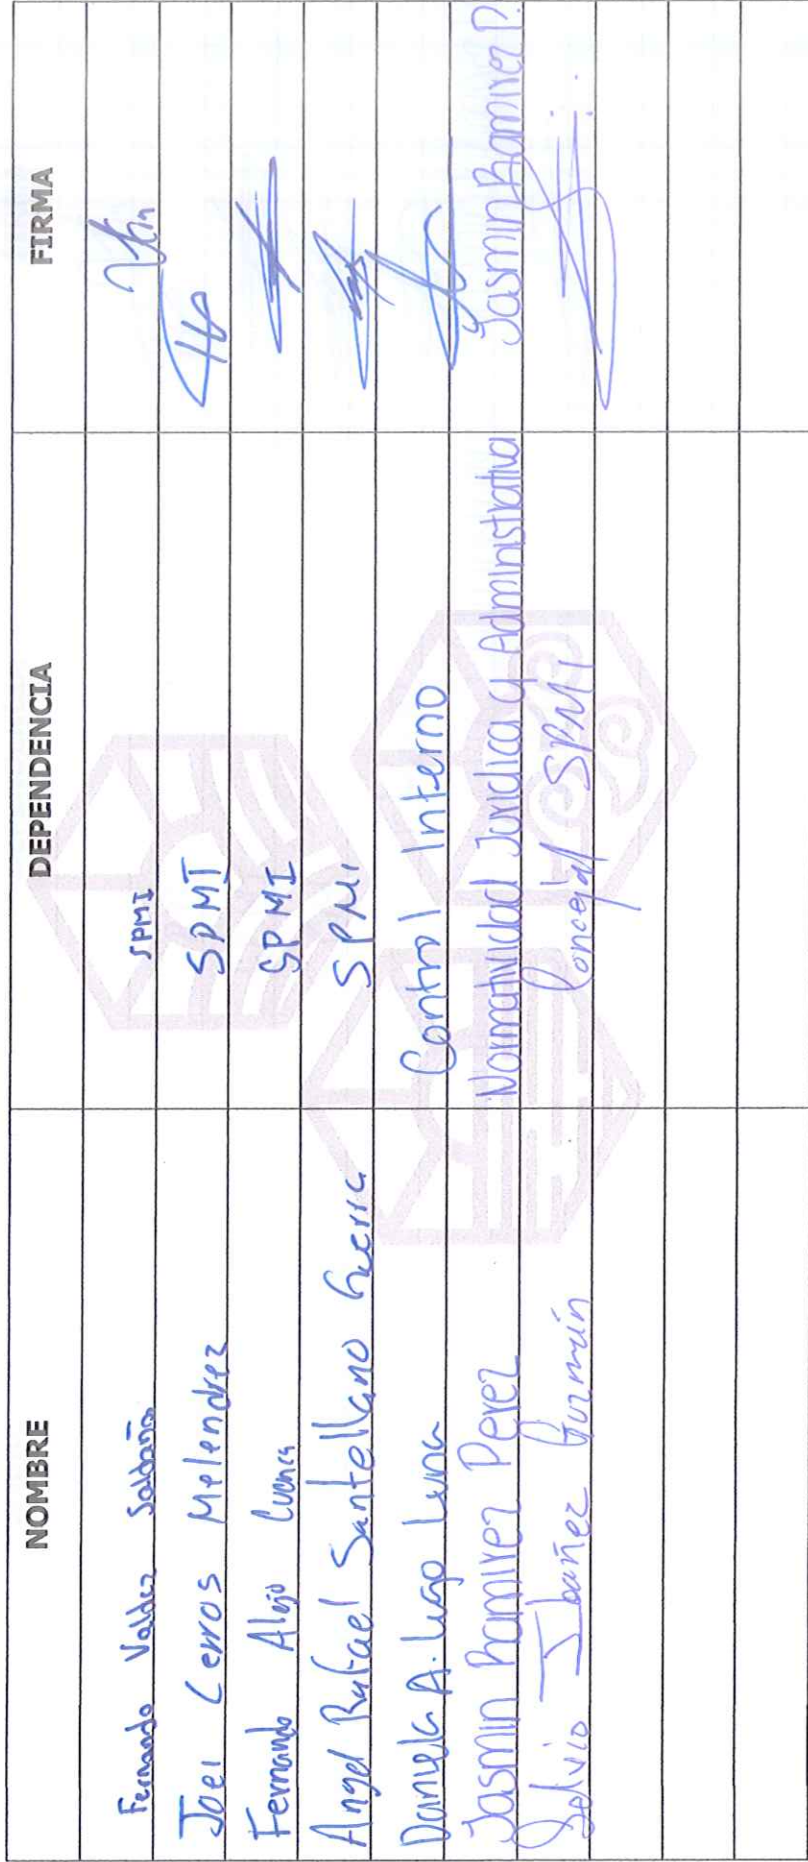 NOMBRE DEPENDENCIA FIRMA
Fernando Valdez Saldaña SPMI
Joel Cerros Melendrez SPMI
Fernando Alejo Cuenca SPMI
Angel Rafael Santellano Guerra SPMI
Daniela A. Lugo Luna Control Interno
Jasmin Ramirez Perez Normatividad Juridica y Administrativa Jasmin Ramirez P.
Selvio Ibañez Guzmán Concejal SPMI